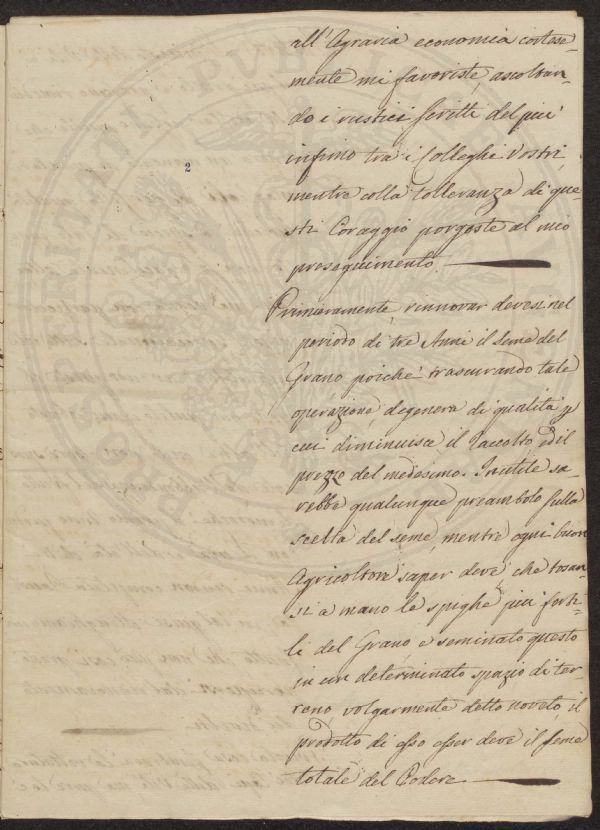 all'Agraria economia cortese-
mente mi favoriste, ascoltan-
do i rustici scritti del più
infimo tra i Colleghi Vostri,
mentre colla tolleranza di que-
sti Coraggio porgeste al mio
proseguimento.
2
Primieramente, rinnovar devesi nel
periodo di tre Anni il seme del
Grano poiché trascurando tale
operazione, degenera di qualità p
cui diminuisce il raccolto ed il
prezzo del medesimo. Inutile sa-
rebbe qualunque preambolo sulla
scelta del seme, mentre ogni buon
Agricoltore saper deve, che tosan-
si a mano le spighe più ferti-
li del Grano e seminato questo
in un determinato spazio di ter-
reno, volgarmente detto noveto, il
prodotto di esso esser deve il seme
totale del Podere.